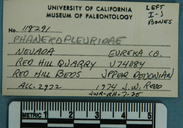 UNIVERSITY OF CALIFORNIA
MUSEUM OF PALEONTOLOGY
LEFT
I-3
BONES
No. 118291
PHANEROPLEURIDAE
NEVADA EUREKA CO.
RED HILL QUARRY V74089
RED HILL BEDS UPPER DEVONIAN
Acc. 2922 1974 J.W. REED
JWR-RH-7-75